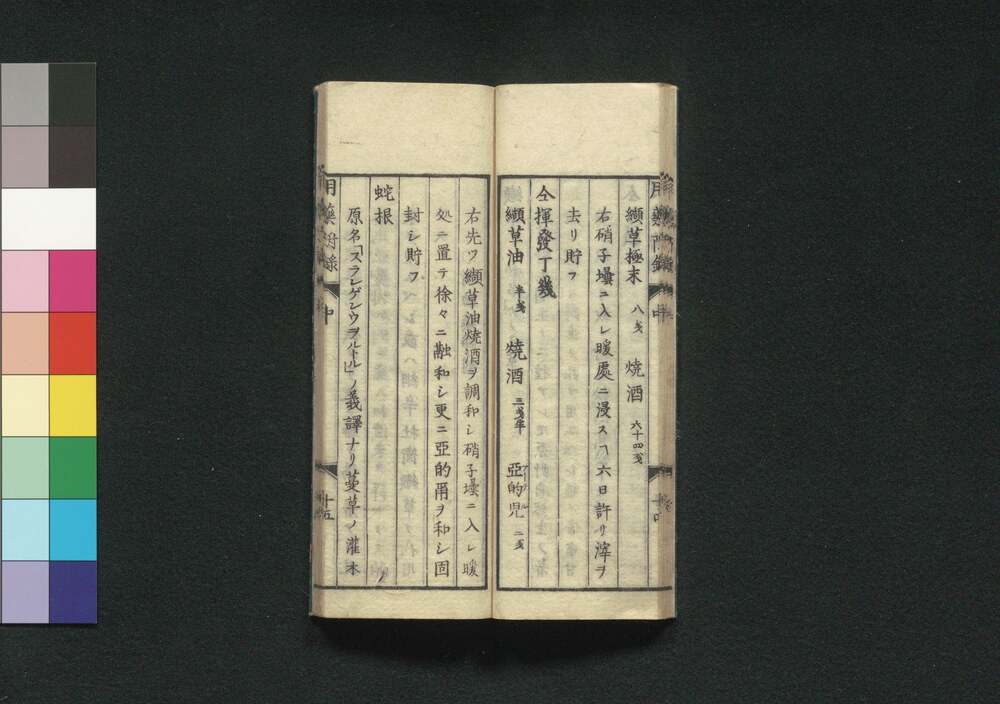 纈草極末 八戔 焼酒 六十四戔
右硝子壜ニ入レ暖處ニ浸スヿ六日許リ滓ヲ
去リ貯フ
仝揮發丁幾
纈草油 半戔 焼酒 三戔半 亞的児 二戔
右先ツ纈草油焼酒ヲ調和シ硝子壜ニ入レ暖
処ニ置テ徐々ニ融和シ更ニ亞的児ヲ和シ固
封シ貯フ
蛇根
原名「スランゲンウヲルトル」ノ義譯ナリ蔓草ノ灌木
用藥附録 中 十五